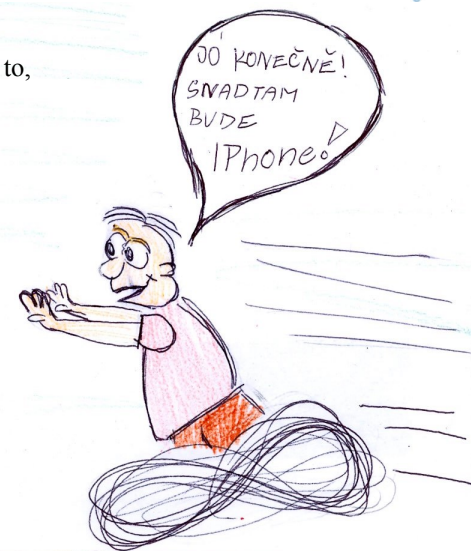 to,
JÓ KONEČNĚ!
SNADTAM
BUDE
IPhone!